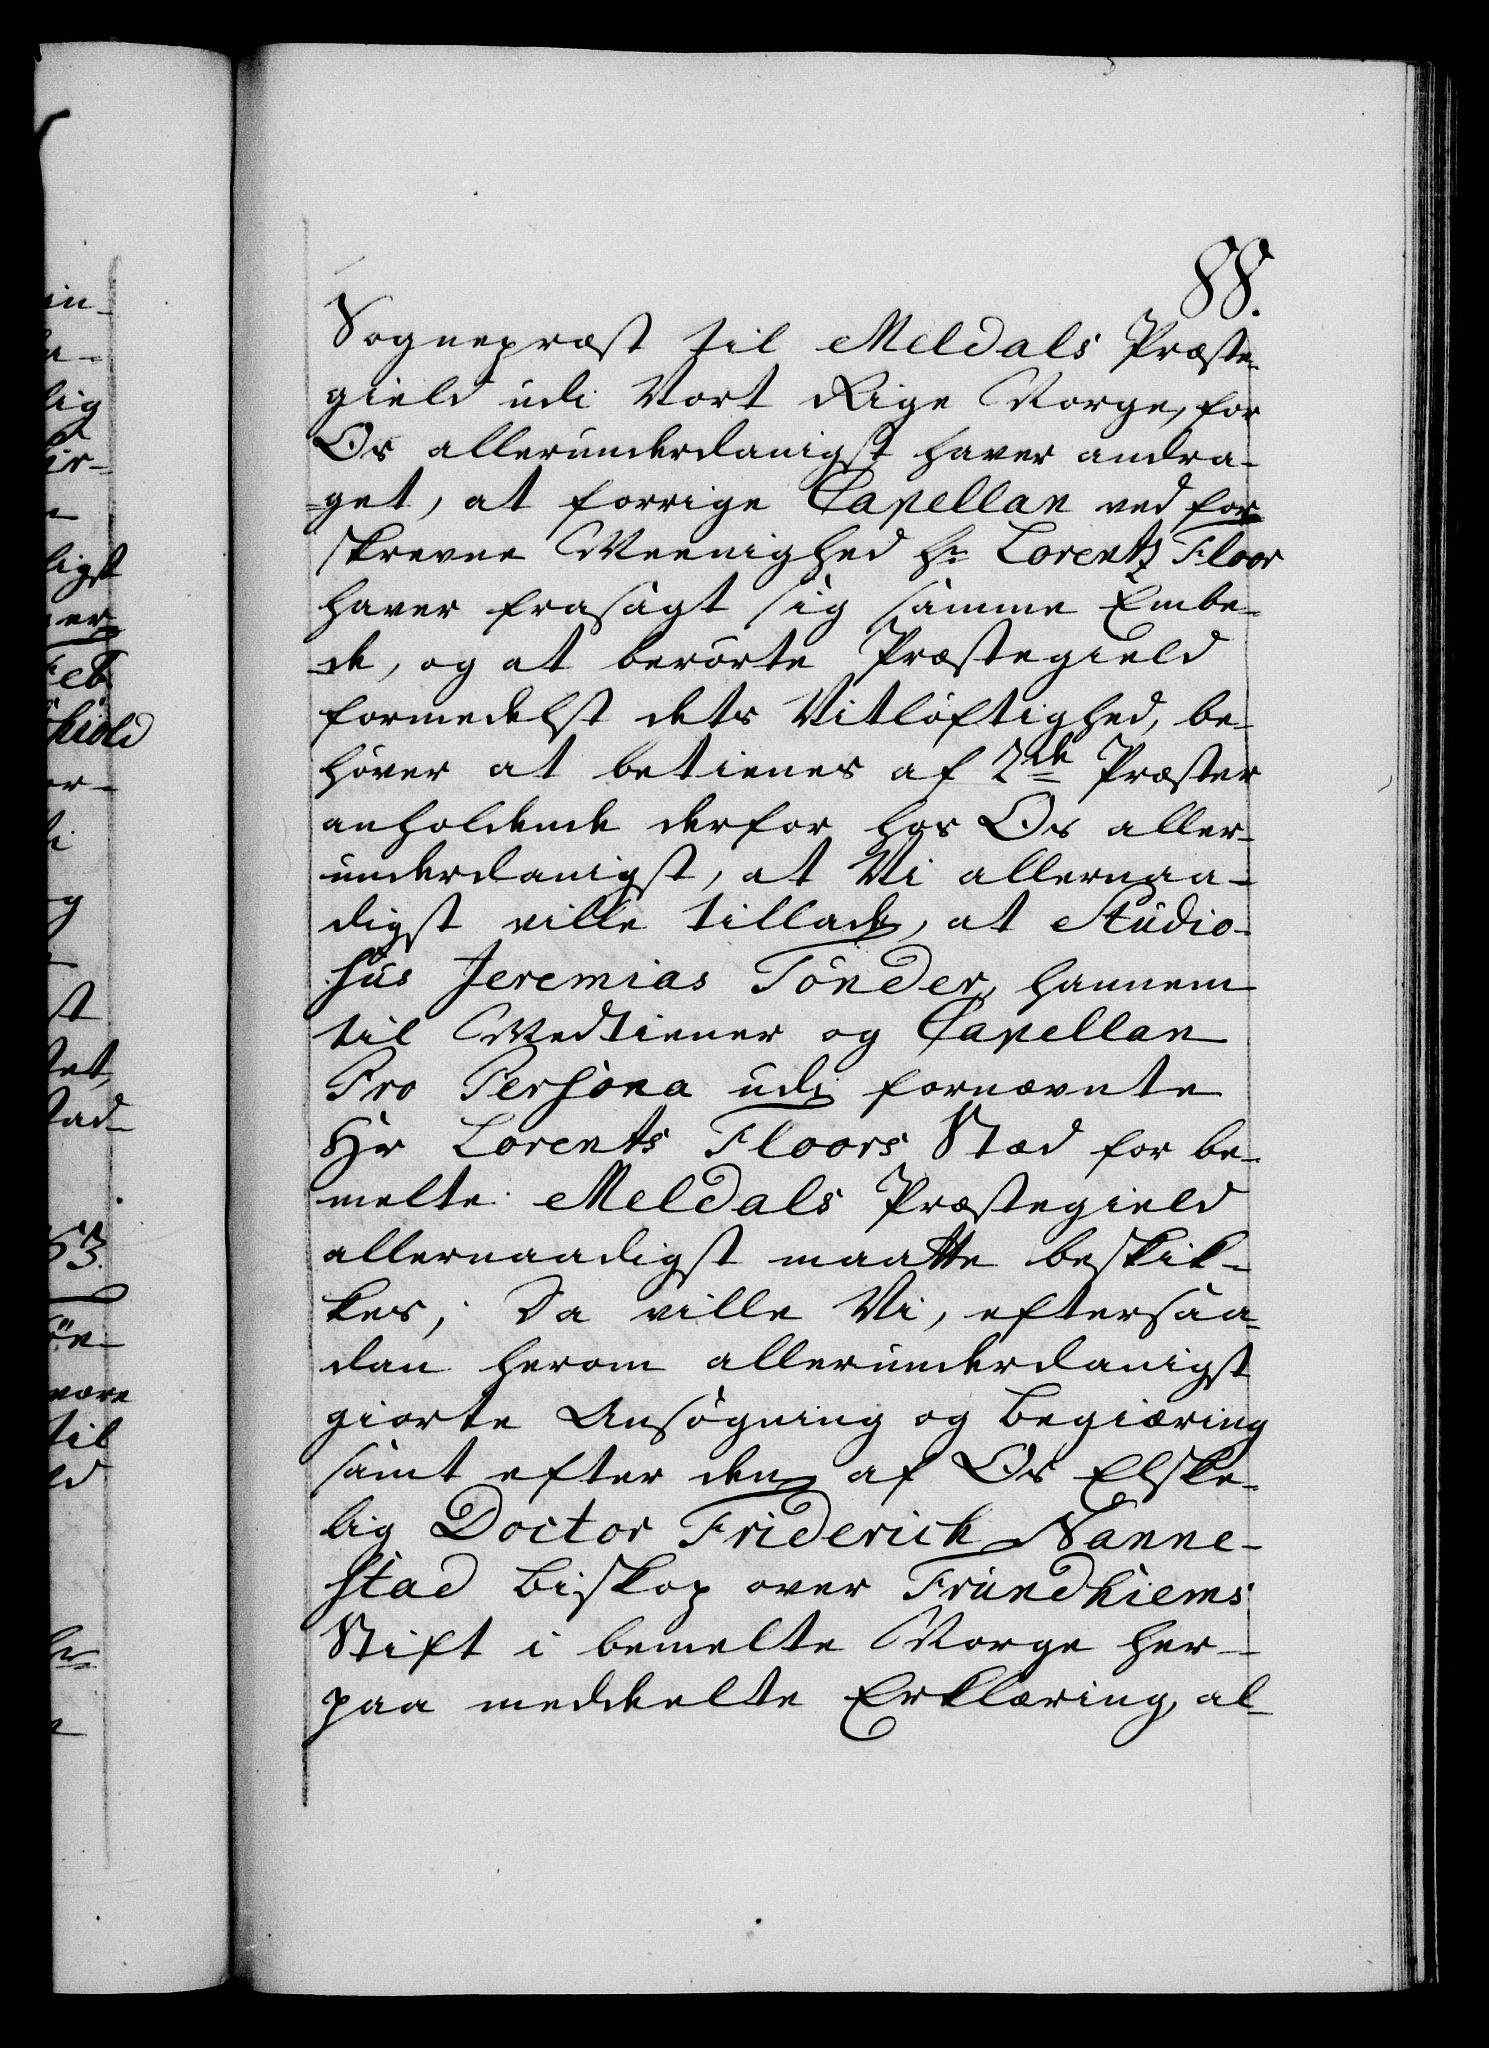 88.
Sognepræst til Meldals Præste-
gield udi Vort Rige Norge, for
Os allerunderdanigst haver andra-
-get, at forrige Capellan ved for
skrevne Meenighed Hr Lorentz Floor
haver frasagt sig samme Embe-
-de, og at berörte Præstegield
formedelst dets Vitløftighed, be-
høver at betienes af 2de Præster
anholdende derfor hos Os aller-
underdanigst, at Vi allernaa-
digst ville tillade, at Studio-
sus Jeremias Tönder, hannem
til Medtiener og Capellan
Pro Persona udi fornævnte
Hr Lorents Floors Stæd for be-
melte Meldals Præstegield
allernaadigst maatte beskik-
kes; Da ville Vi, eftersaa-
dan herom allerunderdanigst
giorte Ansøgning og Begiæring
samt efter den af Os Elske-
lig Doctor Friderich Nanne-
stad Biskop over Trundhiems
Stift i bemelte Norge her-
paa meddeelte Erklæring, al-